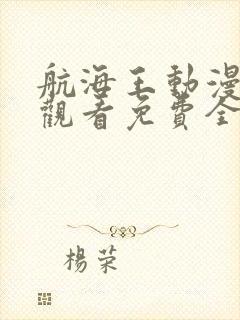 航海王動漫
觀看免費全
楊荣